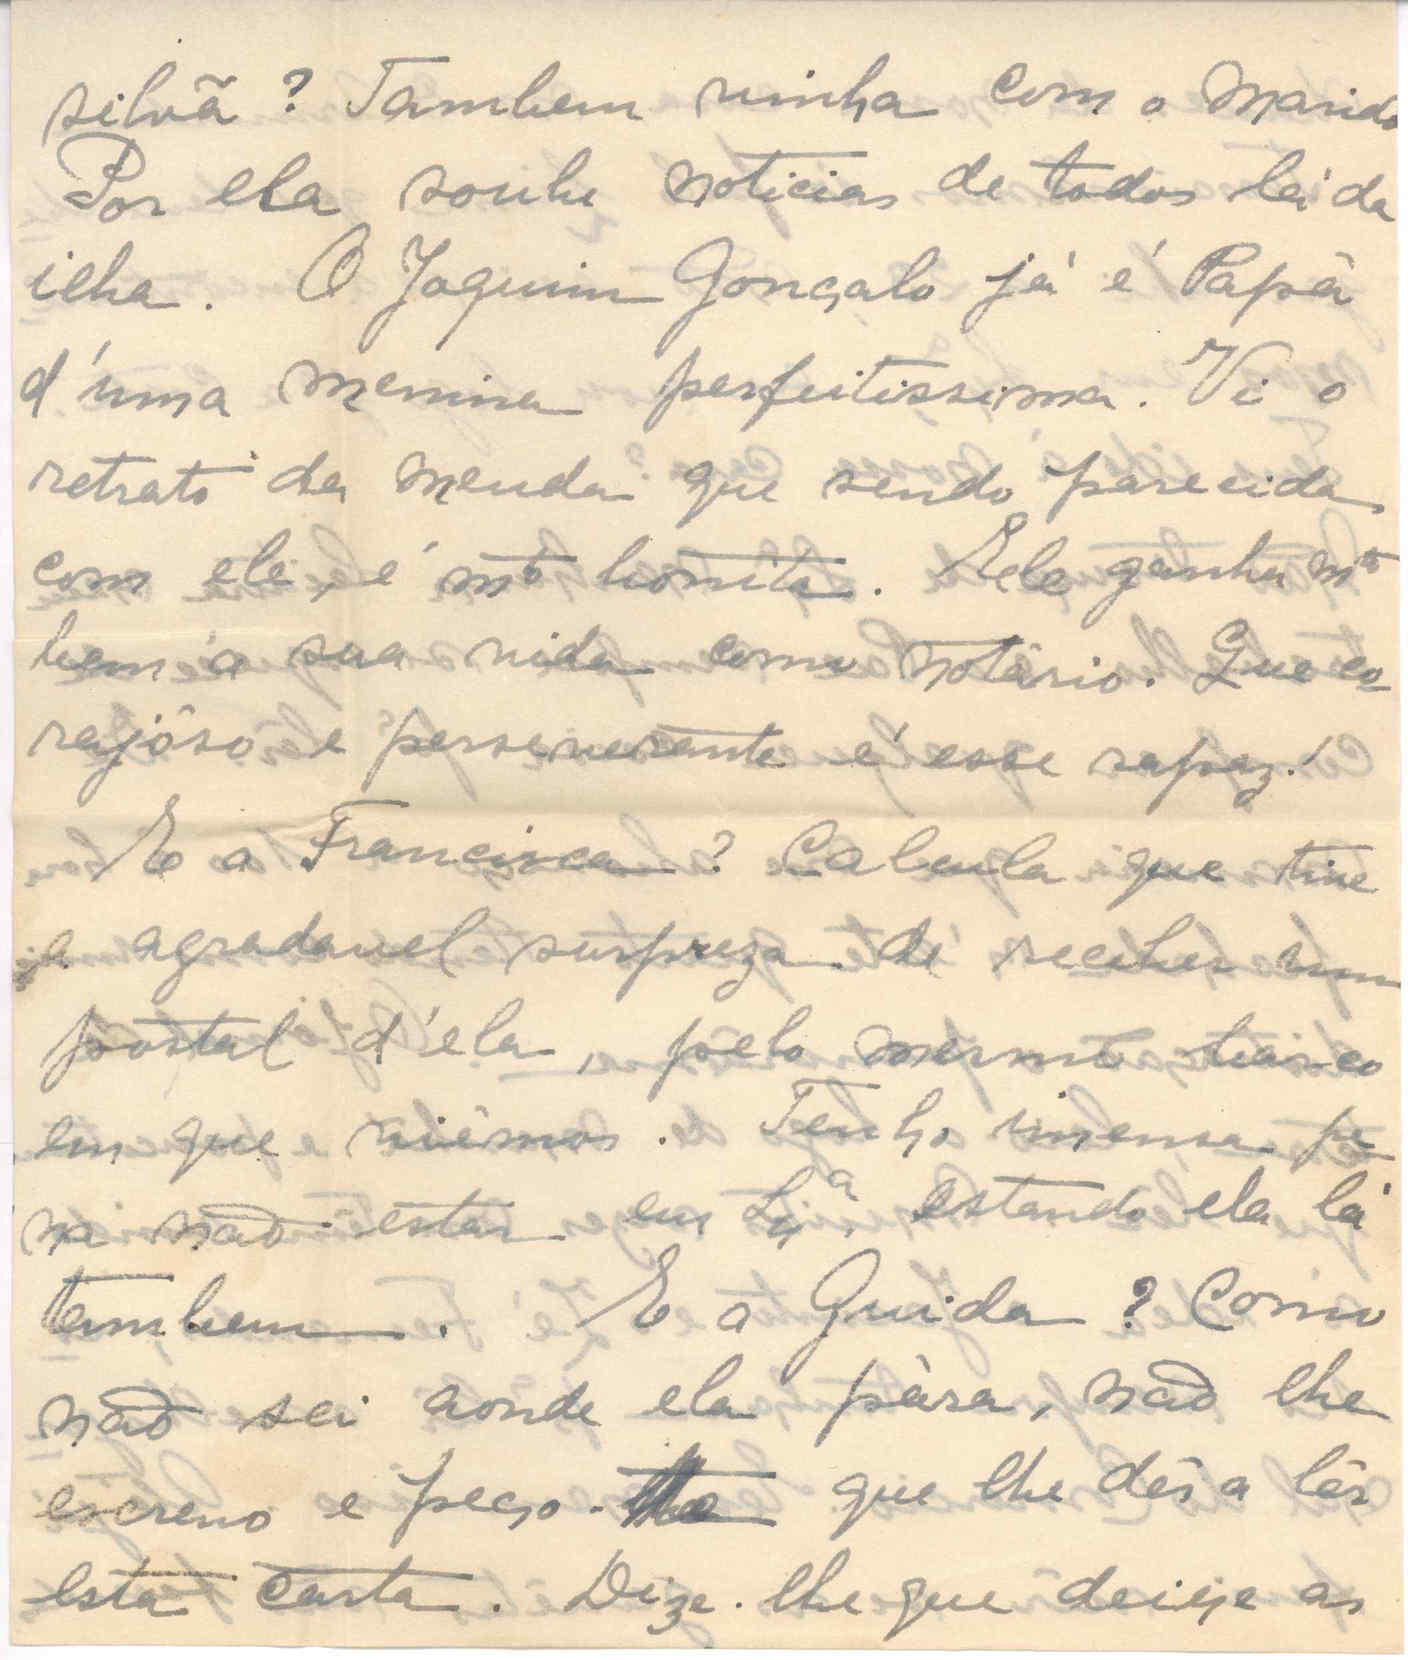 silvã? Tambem vinha com o marido
Por ela soube noticias de todos lá da
ilha. O Joquim Gonçalo já é Papá
d'uma menina perfeitissima. Vi o
retrato da meuda que sendo parecida
com ele, é mto bonita. Ele ganha mto
bem a sua vida como notário. Que co-
rajôso e perseverante é esse rapaz!
E a Francisca? Calcula que tive
a agradavel surpreza de receber um
postal d'ela, pelo mesmo barco
em que viémos. Tenho imensa pe-
na não estar em Lxa. estando ela lá
tambem. E a Guida? Como
não sei aonde ela pára, não lhe
escrevo e peço-te que lhe dês a lêr
esta carta. Dize-lhe que deixe as